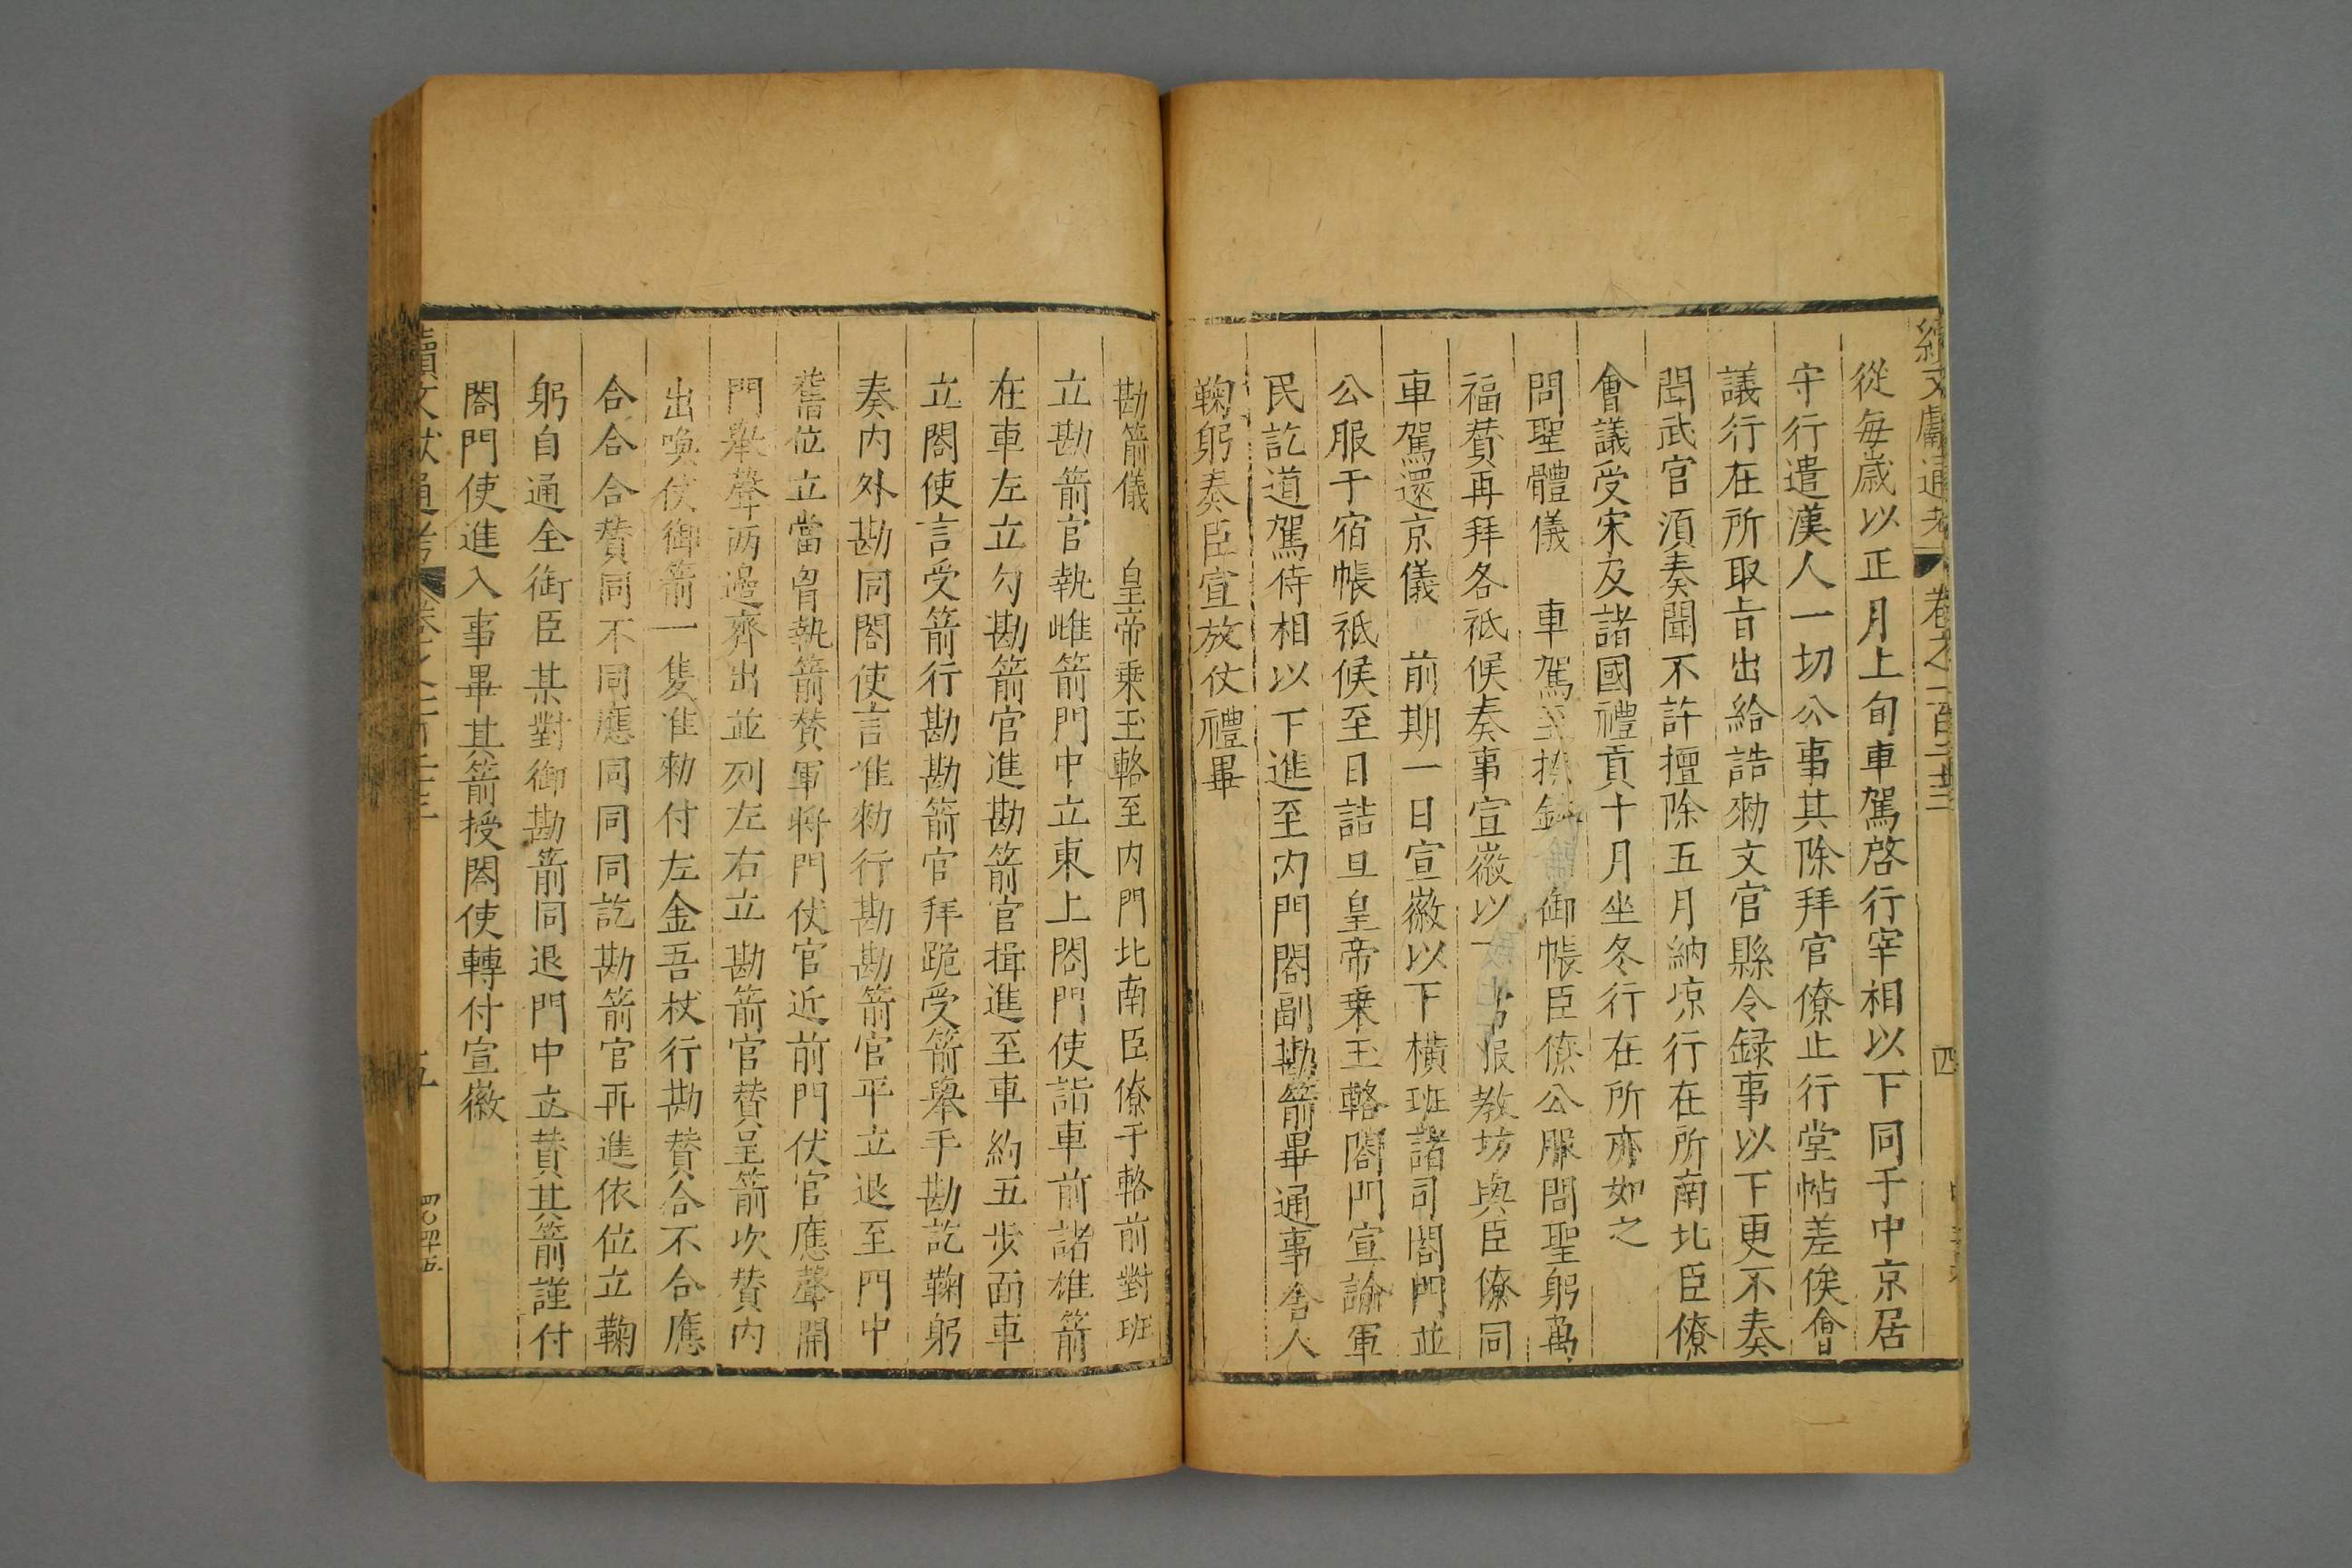 續文獻通考
卷之一百二十三
四
從每歲以正月上旬車駕啓行宰相以下同于中京居
守行遣漢人一切公事其除拜官僚止行堂帖差俟會
議行在所取旨出給誥勅文官縣令録事以下更不奏
聞武官湏奏聞不許擅除五月納凉行在所南北臣僚
會議受宋及諸國禮貢十月坐冬行在所亦如之
問聖體儀 車駕至捺鉢 御帳臣僚公服問聖躬萬
福贊再拜各祗候奏事宣徽以 常服教坊與臣僚同
車駕還京儀 前期一日宣徽以下横班諸司閤門並
公服于宿帳祗候至日詰旦皇帝乗玉輅閤門宣諭軍
民訖道駕侍相以下進至内門閤副勘箭畢通事舍人
鞠躬奏臣宣放仗禮畢
勘箭儀 皇帝乗玉輅至内門北南臣僚于輅前對班
立勘箭官執雌箭門中立東上閤門使詣車前諸雄箭
在車左立勾勘箭官進勘箭官揖進至車約五步面車
立閤使言受箭行勘勘箭官拜跪受箭舉手勘訖鞠躬
奏内外勘同閤使言准勅行勘勘箭官平立退至門中
舊位立當胷執箭贊軍將門仗官近前門伏官應聲開
門舉聲兩邊齊出並列左右立勘箭官贊呈箭次贊内
出喚仗御箭一隻准勅付左金吾杖行勘贊合不合應
合合合贊同不同應同同同訖勘箭官再進依位立鞠
躬自通全銜臣某對御勘箭同退門中立贊其箭謹付
閤門使進入事畢其箭授閤使轉付宣徽
續文獻通考
五
四〇四五